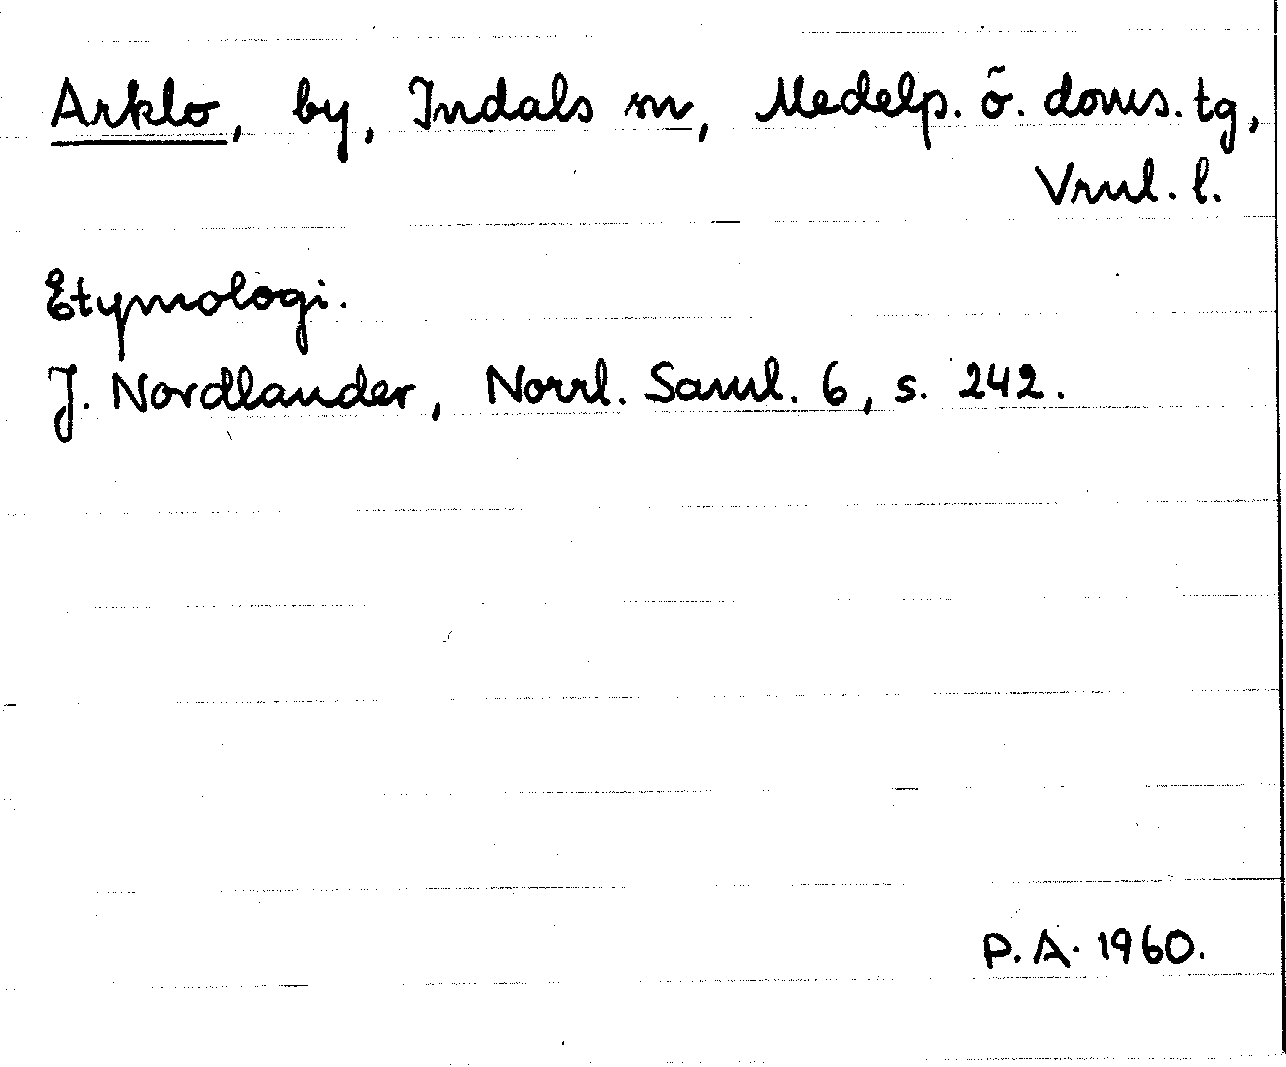 Arklo, by, Indals sn, Medelp. ö. doms. tg,
Vrnl. l.
Etymologi.
J. Nordlander, Norrl. Saml. 6, s. 242.
P. A. 1960.